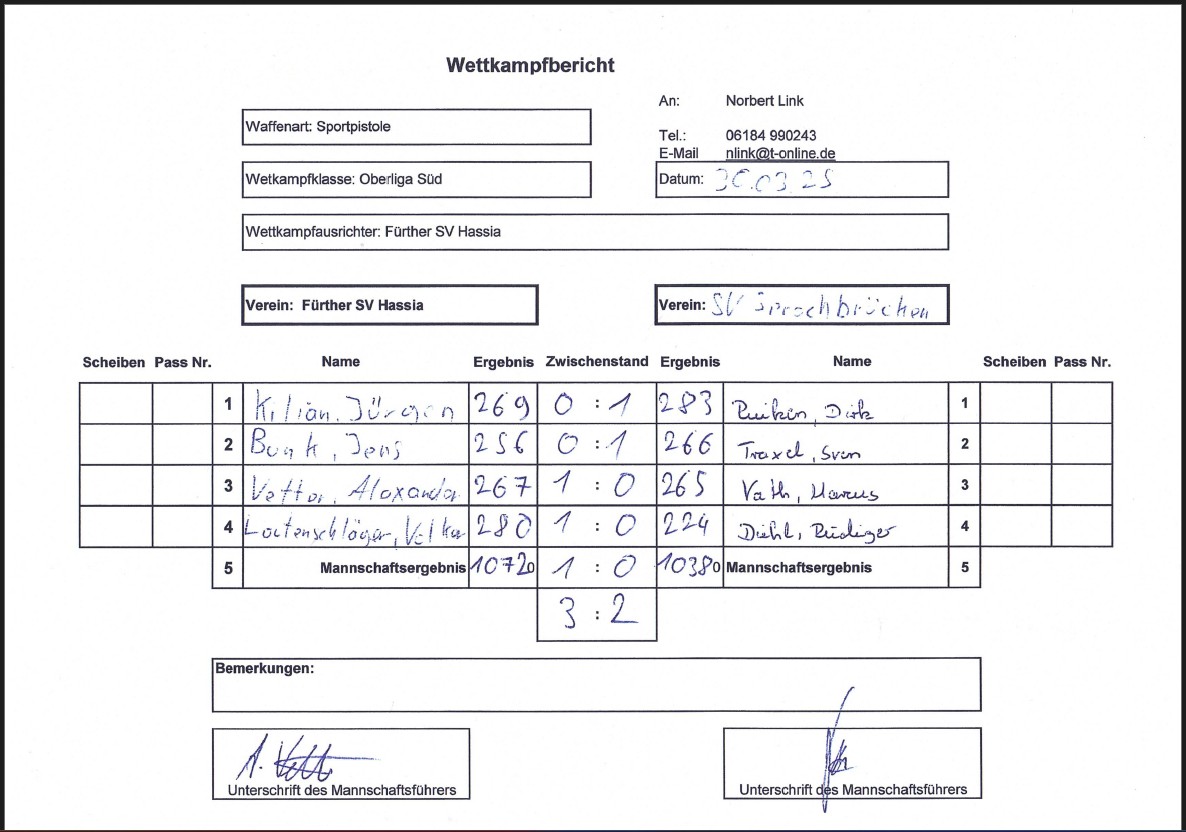 Wettkampfbericht
An: Norbert Link
Waffenart: Sportpistole
Tel.: 06184 990243
E-Mail nlink@t-online.de
Wetkampfklasse: Oberliga Süd
Datum: 30.03.25
Wettkampfausrichter: Fürther SV Hassia
Verein: Fürther SV Hassia
Verein: SV Sprachbrücken
Scheiben Pass Nr. Name Ergebnis Zwischenstand Ergebnis Name Scheiben Pass Nr.
1 Kilian, Jürgen 269 0 : 1 283 Dirk 1
2 Bunk, Jens 256 0 : 1 266 Traxel, Sven 2
3 Vetter, Alexander 267 1 : 0 265 Vath, Marcus 3
4 Lautenschläger, Volker 280 1 : 0 224 Diehl, Rüdiger 4
5 Mannschaftsergebnis 1072 0 1 : 0 1038 0 Mannschaftsergebnis 5
3 : 2
Bemerkungen:
A. Vett
Unterschrift des Mannschaftsführers
Unterschrift des Mannschaftsführers